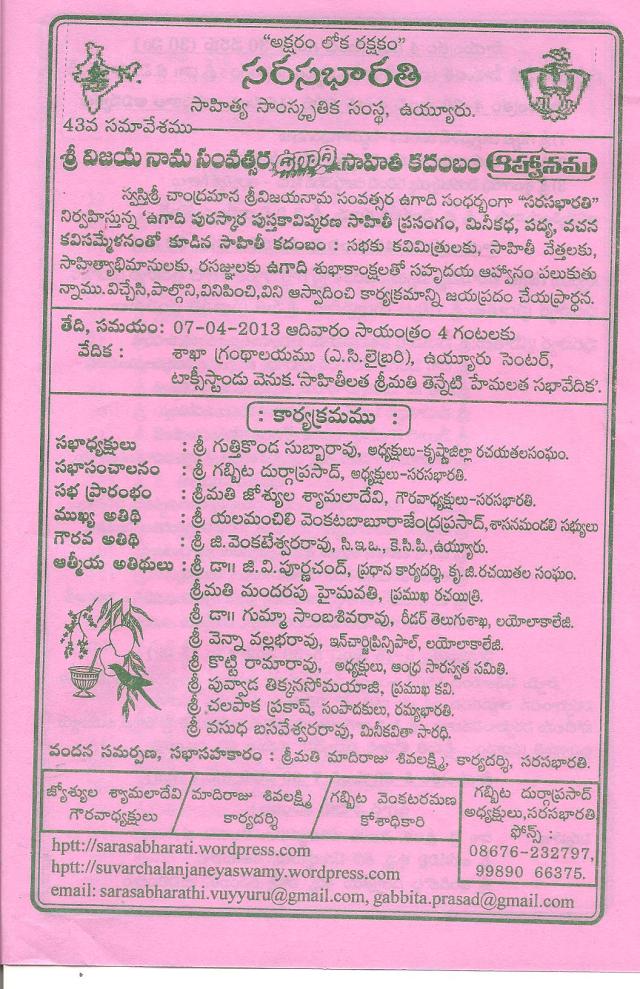 “అక్షరం లోక రక్షకం”
సరసభారతి
సాహిత్య సాంస్కృతిక సంస్థ, ఉయ్యూరు.
43వ సమావేశము
శ్రీ విజయ నామ సంవత్సర ఉగాది సాహితీ కదంబం ఆహ్వానము
స్వస్తిశ్రీ చాంద్రమాన శ్రీవిజయనామ సంవత్సర ఉగాది సందర్భంగా “సరసభారతి”
నిర్వహిస్తున్న ‘ఉగాది పురస్కార పుస్తకావిష్కరణ సాహితీ ప్రసంగం, మినీకధ, పద్య, వచన
కవిసమ్మేళనంతో కూడిన సాహితీ కదంబం : సభకు కవిమిత్రులకు, సాహితీ వేత్తలకు,
సాహిత్యాభిమానులకు, రసజ్ఞులకు ఉగాది శుభాకాంక్షలతో సహృదయ ఆహ్వానం పలుకుతు
న్నాము.విచ్చేసి,పాల్గొని,వినిపించి,విని ఆస్వాదించి కార్యక్రమాన్ని జయప్రదం చేయప్రార్ధన.
తేది, సమయం: 07-04-2013 ఆదివారం సాయంత్రం 4 గంటలకు
వేదిక : శాఖా గ్రంథాలయము (ఎ.సి.లైబ్రరి), ఉయ్యూరు సెంటర్,
టాక్సీస్టాండు వెనుక. ‘సాహితీలత శ్రీమతి తెన్నేటి హేమలత సభావేదిక’.
: కార్యక్రమము :
సభాధ్యక్షులు : శ్రీ గుత్తికొండ సుబ్బారావు, అధ్యక్షులు-కృష్ణాజిల్లా రచయతలసంఘం.
సభాసంచాలనం : శ్రీ గబ్బిట దుర్గాప్రసాద్, అధ్యక్షులు-సరసభారతి.
సభ ప్రారంభం : శ్రీమతి జోశ్యుల శ్యామలాదేవి, గౌరవాధ్యక్షులు-సరసభారతి.
ముఖ్య అతిథి : శ్రీ యలమంచిలి వెంకటబాబూరాజేంద్రప్రసాద్,శాసనమండలి సభ్యులు
గౌరవ అతిథి : శ్రీ జి.వెంకటేశ్వరరావు, సి.ఇ.ఒ., కె.సి.పి.,ఉయ్యూరు.
ఆత్మీయ అతిథులు : శ్రీ డా॥ జి.వి.పూర్ణచంద్, ప్రధాన కార్యదర్శి, కృ.జి.రచయితల సంఘం.
శ్రీమతి మందరపు హైమవతి, ప్రముఖ రచయిత్రి.
శ్రీ డా॥ గుమ్మా సాంబశివరావు, రీడర్ తెలుగుశాఖ, లయోలాకాలేజి.
శ్రీ వెన్నా వల్లభరావు, ఇన్‌చార్జిప్రిన్సిపాల్, లయోలాకాలేజి.
శ్రీ కొట్టి రామారావు, అధ్యక్షులు, ఆంధ్ర సారస్వత సమితి.
శ్రీ పువ్వాడ తిక్కనసోమయాజి, ప్రముఖ కవి.
శ్రీ చలపాక ప్రకాష్, సంపాదకులు, రమ్యభారతి.
శ్రీ వసుధ బసవేశ్వరరావు, మినీకవితా సారధి.
వందన సమర్పణ, సభాసహకారం : శ్రీమతి మాదిరాజు శివలక్ష్మి, కార్యదర్శి, సరసభారతి.
జ్యోశ్యుల శ్యామలాదేవి
గౌరవాధ్యక్షులు
మాదిరాజు శివలక్ష్మి
కార్యదర్శి
గబ్బిట వెంకటరమణ
కోశాధికారి
గబ్బిట దుర్గాప్రసాద్
అధ్యక్షులు,సరసభారతి
ఫోన్స్ :
08676-232797,
99890 66375.
hptt://sarasabharati.wordpress.com
hptt://suvarchalanjaneyaswamy.wordpress.com
email: sarasabharathi.vuyyuru@gmail.com, gabbita.prasad@gmail.com